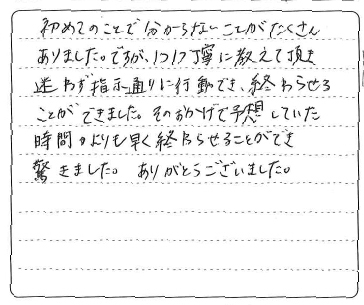 初めてのことで分からないことがたくさん
ありました。ですが、1つ1つ丁寧に教えて頂き
迷わず指示通りに行動でき、終わらせる
ことができました。そのおかげで予想していた
時間よりも早く終わらせることができ
驚きました。ありがとうございました。